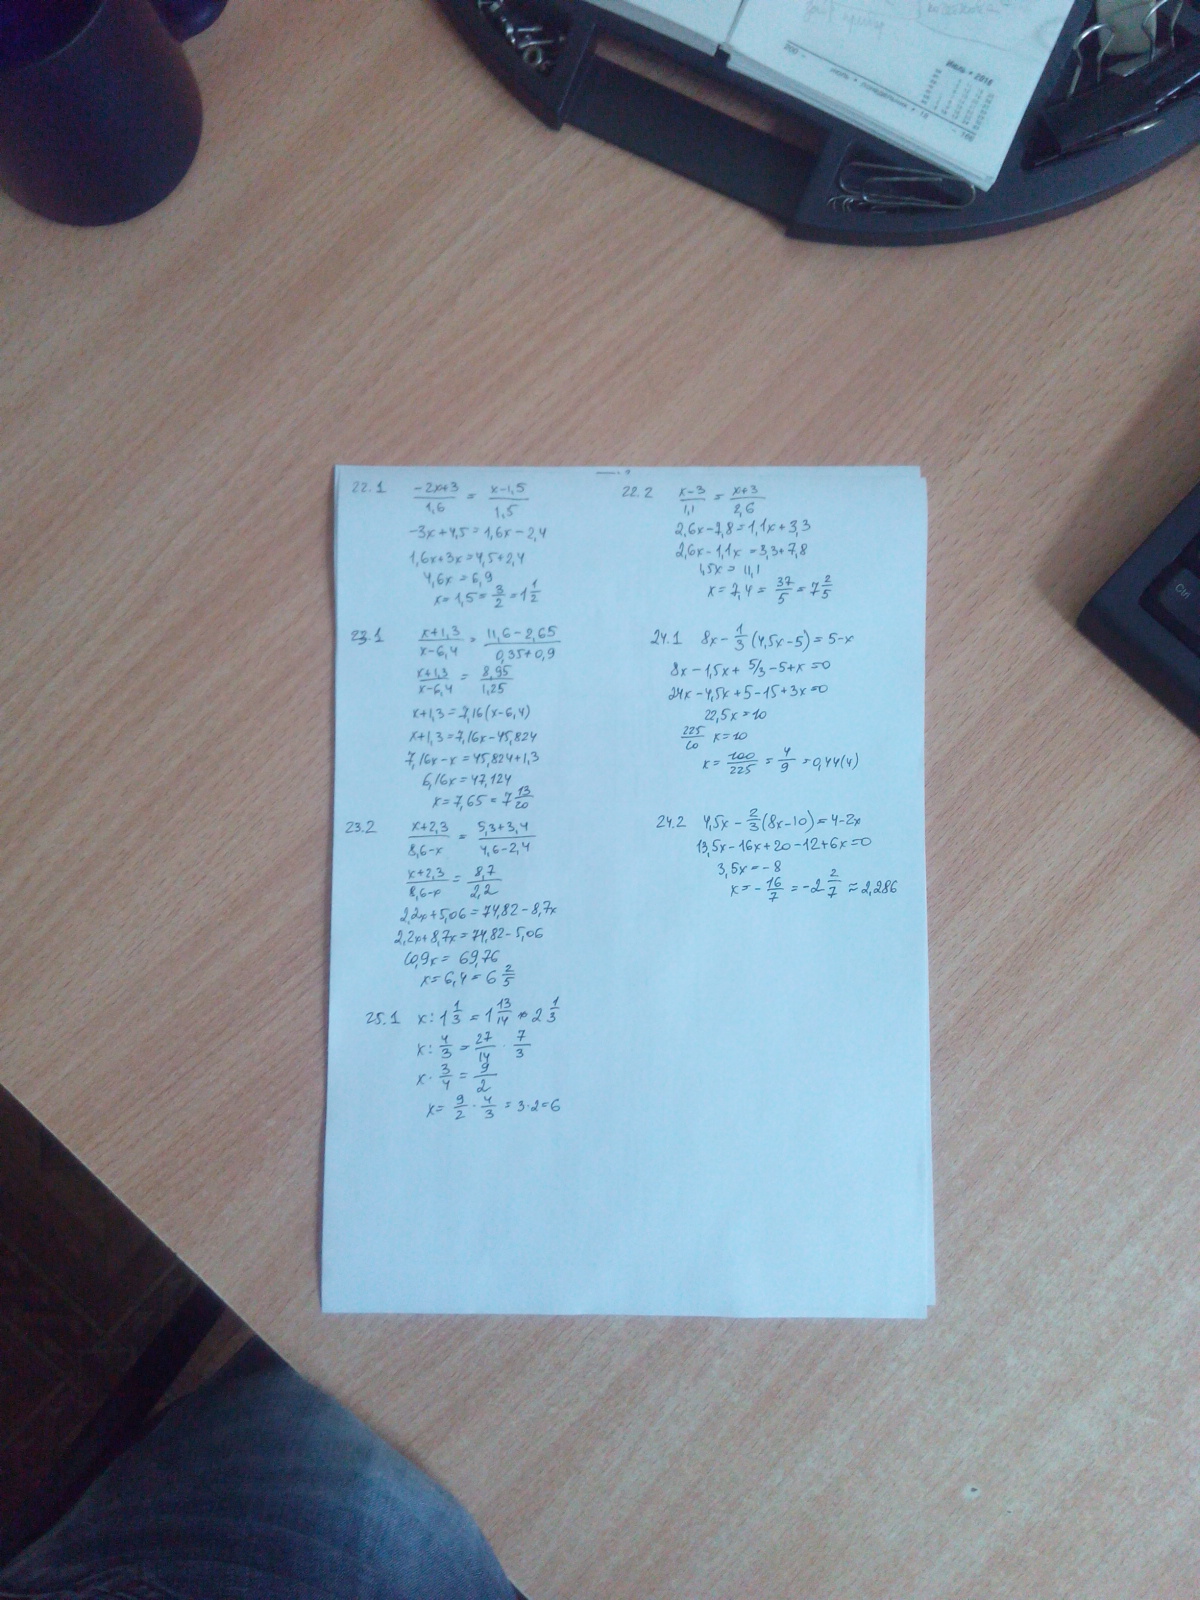 200 - ИЮЛЬ • ПОНЕДЕЛЬНИК • 18 - 166
Июль • 2016
Ctrl
22.1 (-2x+3)/1,6 = (x-1,5)/1,5
-3x+4,5=1,6x-2,4
1,6x+3x=4,5+2,4
4,6x=6,9
x=1,5=3/2=1 1/2
22.2 (x-3)/1,1 = (x+3)/2,6
2,6x-7,8=1,1x+3,3
2,6x-1,1x=3,3+7,8
1,5x=11,1
x=7,4=37/5=7 2/5
23.1 (x+1,3)/(x-6,4) = (11,6-2,65)/(0,35+0,9)
(x+1,3)/(x-6,4) = 8,95/1,25
x+1,3=7,16(x-6,4)
x+1,3=7,16x-45,824
7,16x-x=45,824+1,3
6,16x=47,124
x=7,65=7 13/20
24.1 8x-1/3(4,5x-5)=5-x
8x-1,5x+5/3-5+x=0
24x-4,5x+5-15+3x=0
22,5x=10
225/10 x=10
x=100/225=4/9=0,44(4)
23.2 (x+2,3)/(8,6-x) = (5,3+3,4)/(4,6-2,4)
(x+2,3)/(8,6-x) = 8,7/2,2
2,2x+5,06=74,82-8,7x
2,2x+8,7x=74,82-5,06
10,9x=69,76
x=6,4=6 2/5
24.2 4,5x-2/3(8x-10)=4-2x
13,5x-16x+20-12+6x=0
3,5x=-8
x=-16/7=-2 2/7≈2,286
25.1 x:1 1/3=1 13/14*2 1/3
x:4/3=27/14·7/3
x·3/4=9/2
x=9/2·4/3=3·2=6